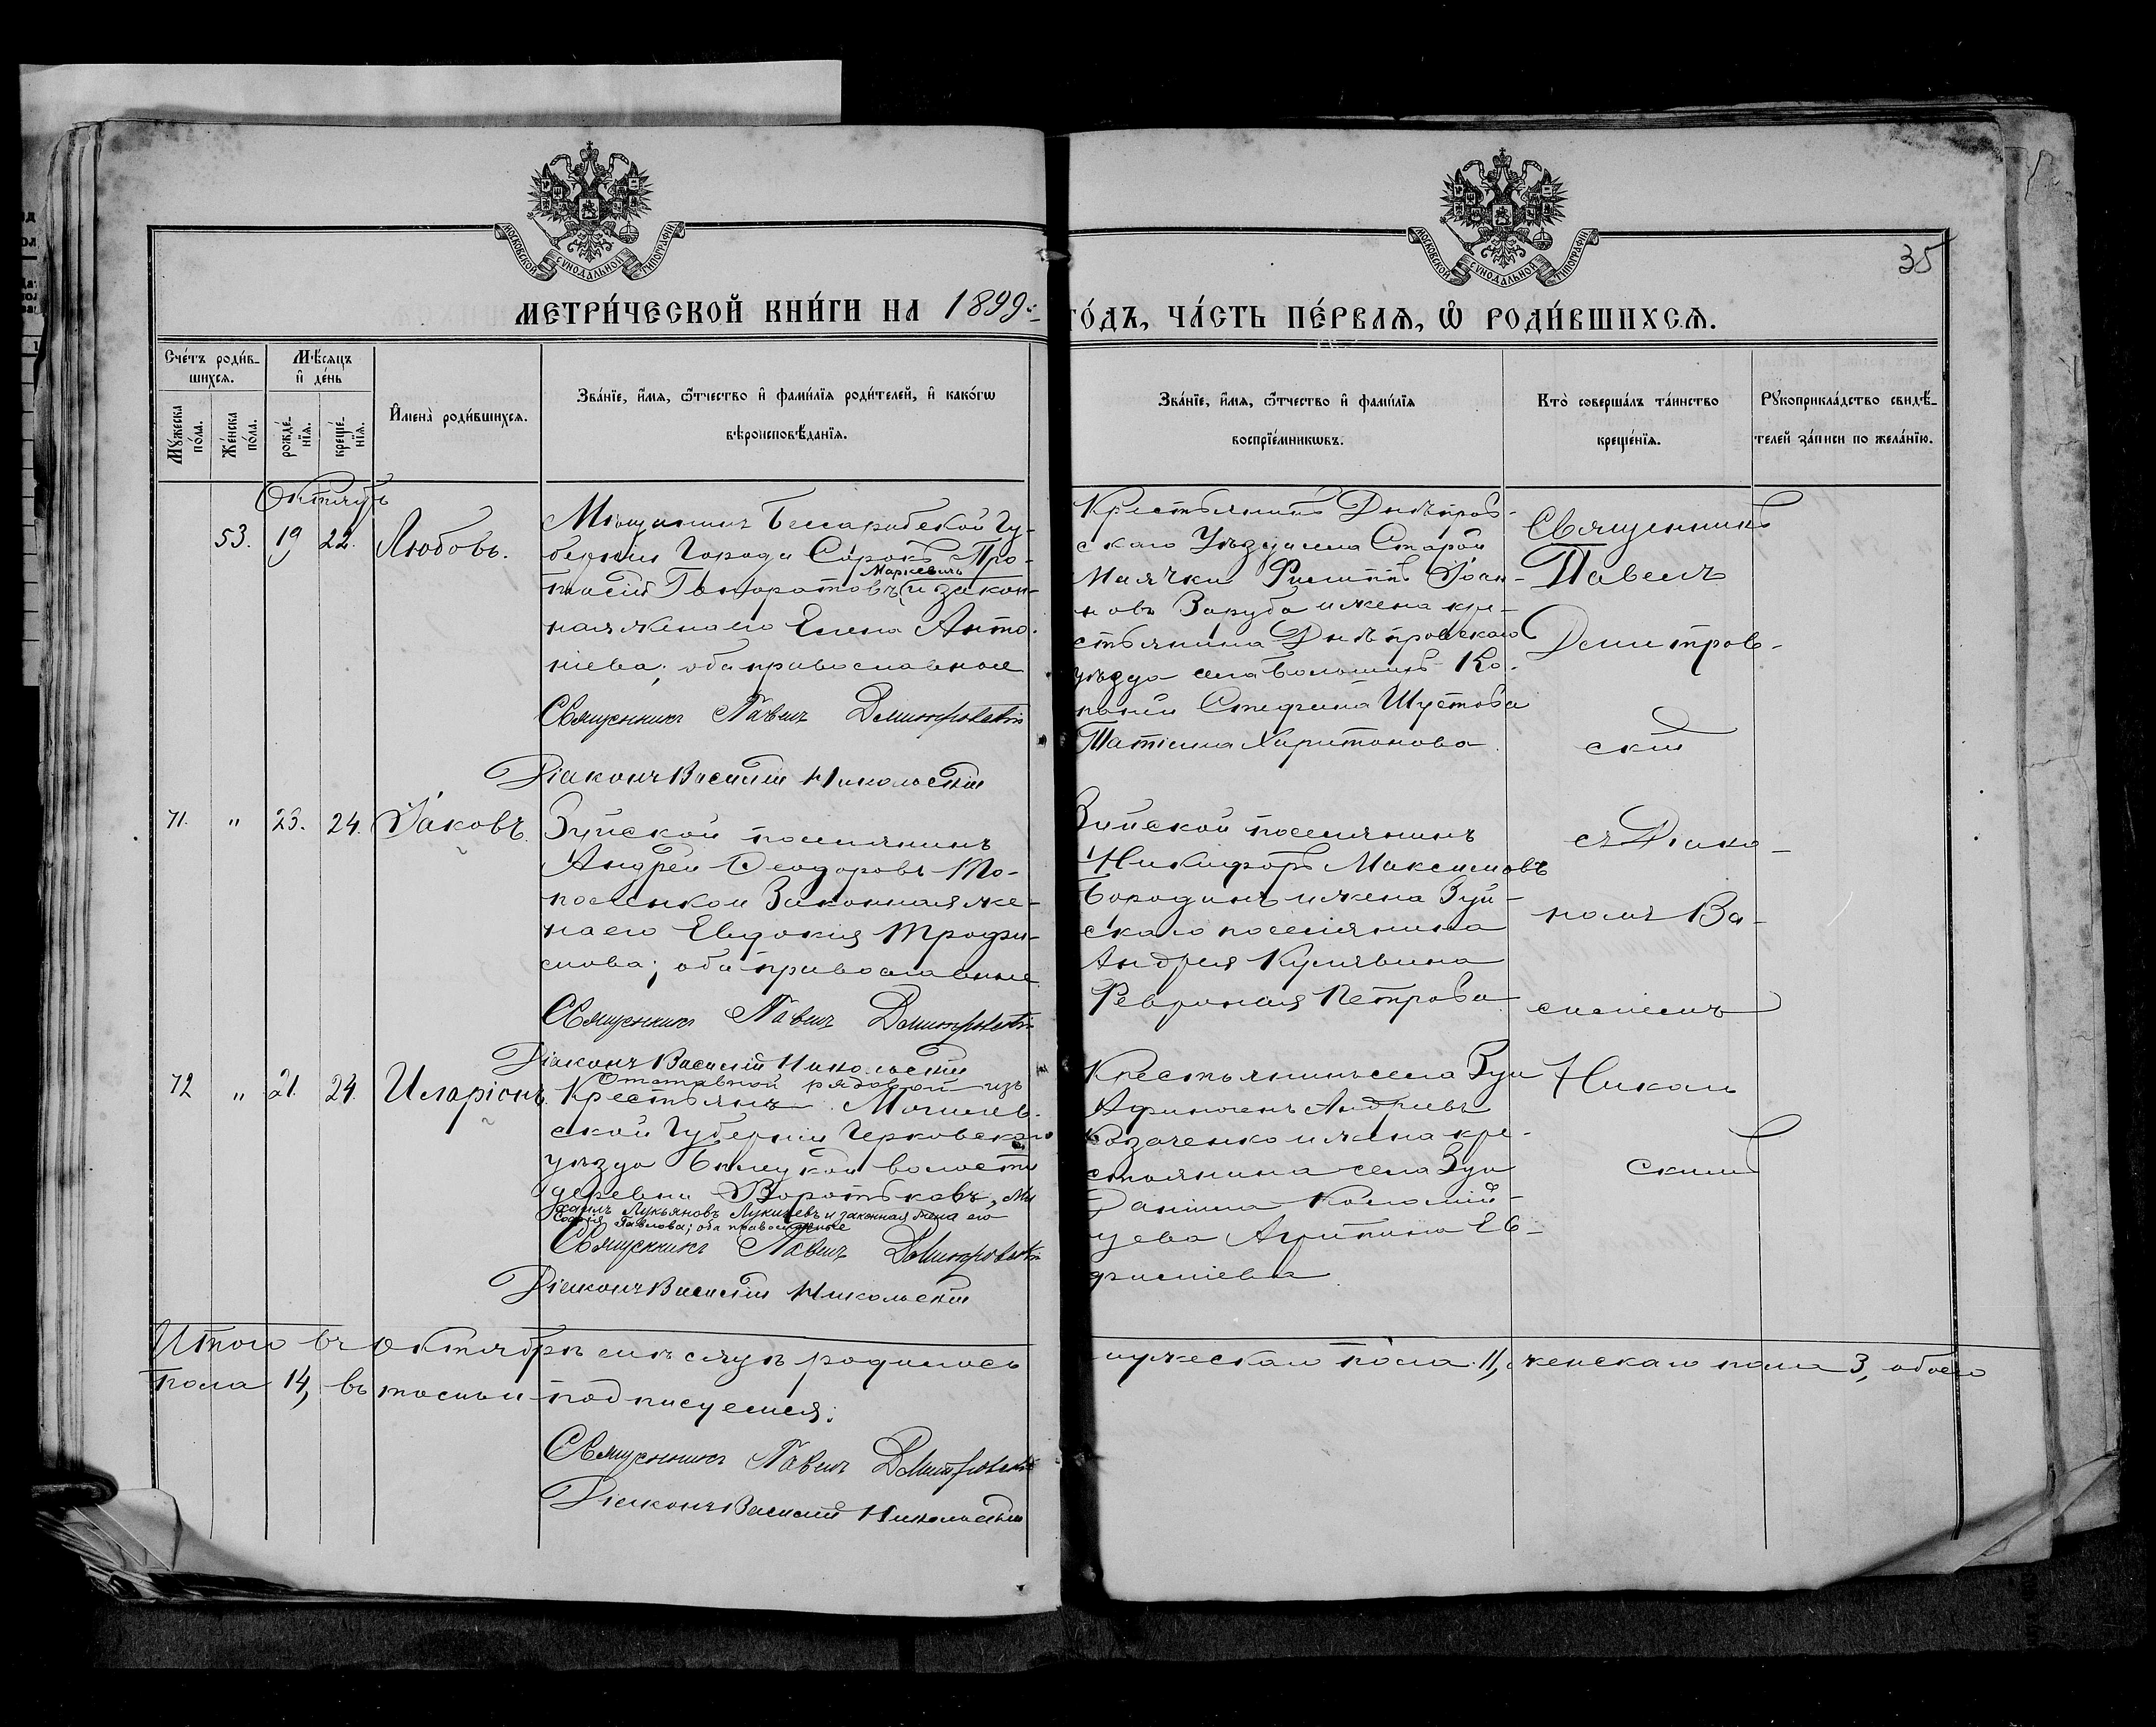 МОСКОВСКОЙ СУНОДАЛЬНОЙ ТИПОГРАФІИ
МОСКОВСКОЙ СУНОДАЛЬНОЙ ТИПОГРАФІИ
35
МЕТРИ́ЧЕСКОЙ КНИ́ГИ НА 1899
ГО́ДЪ, ЧА́СТЬ ПЕ́РВАѦ, Ѡ РОДИ́ВШИХСѦ.
Сче́тъ роди́в-
шихсѧ.
Мѣ́сѧцъ
и҆ де́нь
Мꙋ́жеска
по́ла.
Же́нска
по́ла.
рожде́-
нїѧ.
креще́-
нїѧ.
И҆мена̀ роди́вшихсѧ.
Зва́нїе, и҆́мѧ, ѻ҆́тчество и҆ фами́лїѧ роди́телей, и҆ како́гѡ
вѣроисповѣ́данїѧ.
Зва́нїе, и҆́мѧ, ѻ҆́тчество и҆ фами́лїѧ
воспрїе́мникѡвъ.
Кто̀ соверша́лъ та́инство
креще́нїѧ.
Рꙋкоприкла́дство свидѣ́-
телей за́писи по жела́нїю.
Октябрь
53. 19 22. Любовь.
Мѣщанинъ Бессарабской Гу-
берніи Города Сорокъ Про-
Маркевичъ
и закон-
ная жена его Елена Анто-
ніева; оба православные
Священникъ Павелъ Димитровскій
Діаконъ Василій Никольскій
Крестьянинъ Днѣпров-
скаго Уѣзда села Старой
Маячки Филиппъ Іоан-
новъ Заруба и жена кре-
стьянина Днѣпровскаго
уѣзда села Большихъ Ко-
паней Стефана Шустова
Татіана Харитонова
Священникъ
Павелъ
Димитров-
скій
71. " 23. 24. Іаковъ.
Зуйской поселянинъ
Андрей Ѳеодоровъ То-
поленкои Законная же-
на его Евдокія Трофи-
мова; оба православные
Священникъ Павелъ Димитровскій
Діаконъ Василій Никольскій
Зуйской поселянинъ
Никифоръ Максимовъ
Бородинъ и жена Зуй-
скаго поселянина
Андрея Кулявина
Февронія Петрова
съ Діако-
номъ Ва-
силіемъ
72 " 21. 24. Иларіонъ.
Отставной рядовой изъ
Крестьянъ Могилев-
ской Губерніи Чериковскаго
уѣзда волости
деревни Воротьковъ, Ми
хаилъ Лукьяновъ Лукичевъ и законная жена его
Софія Павлова; оба православные
Священникъ Павелъ Димитровскій
Діаконъ Василій Никольскій
Крестьянинъ села Зуи
Андреевъ
Козаченко и жена кре-
стьянина села Зуи
Даніила Коломій-
цева Агрипина Ев-
фиміева
Николь
скимъ
Итого въ Октябрѣ мѣсяцѣ родилось мужескаго пола 11, женскаго пола 3, обоего
пола 14, въ томъ и подписуемся:
Священникъ Павелъ Димитровскій
Діаконъ Василій Никольскій